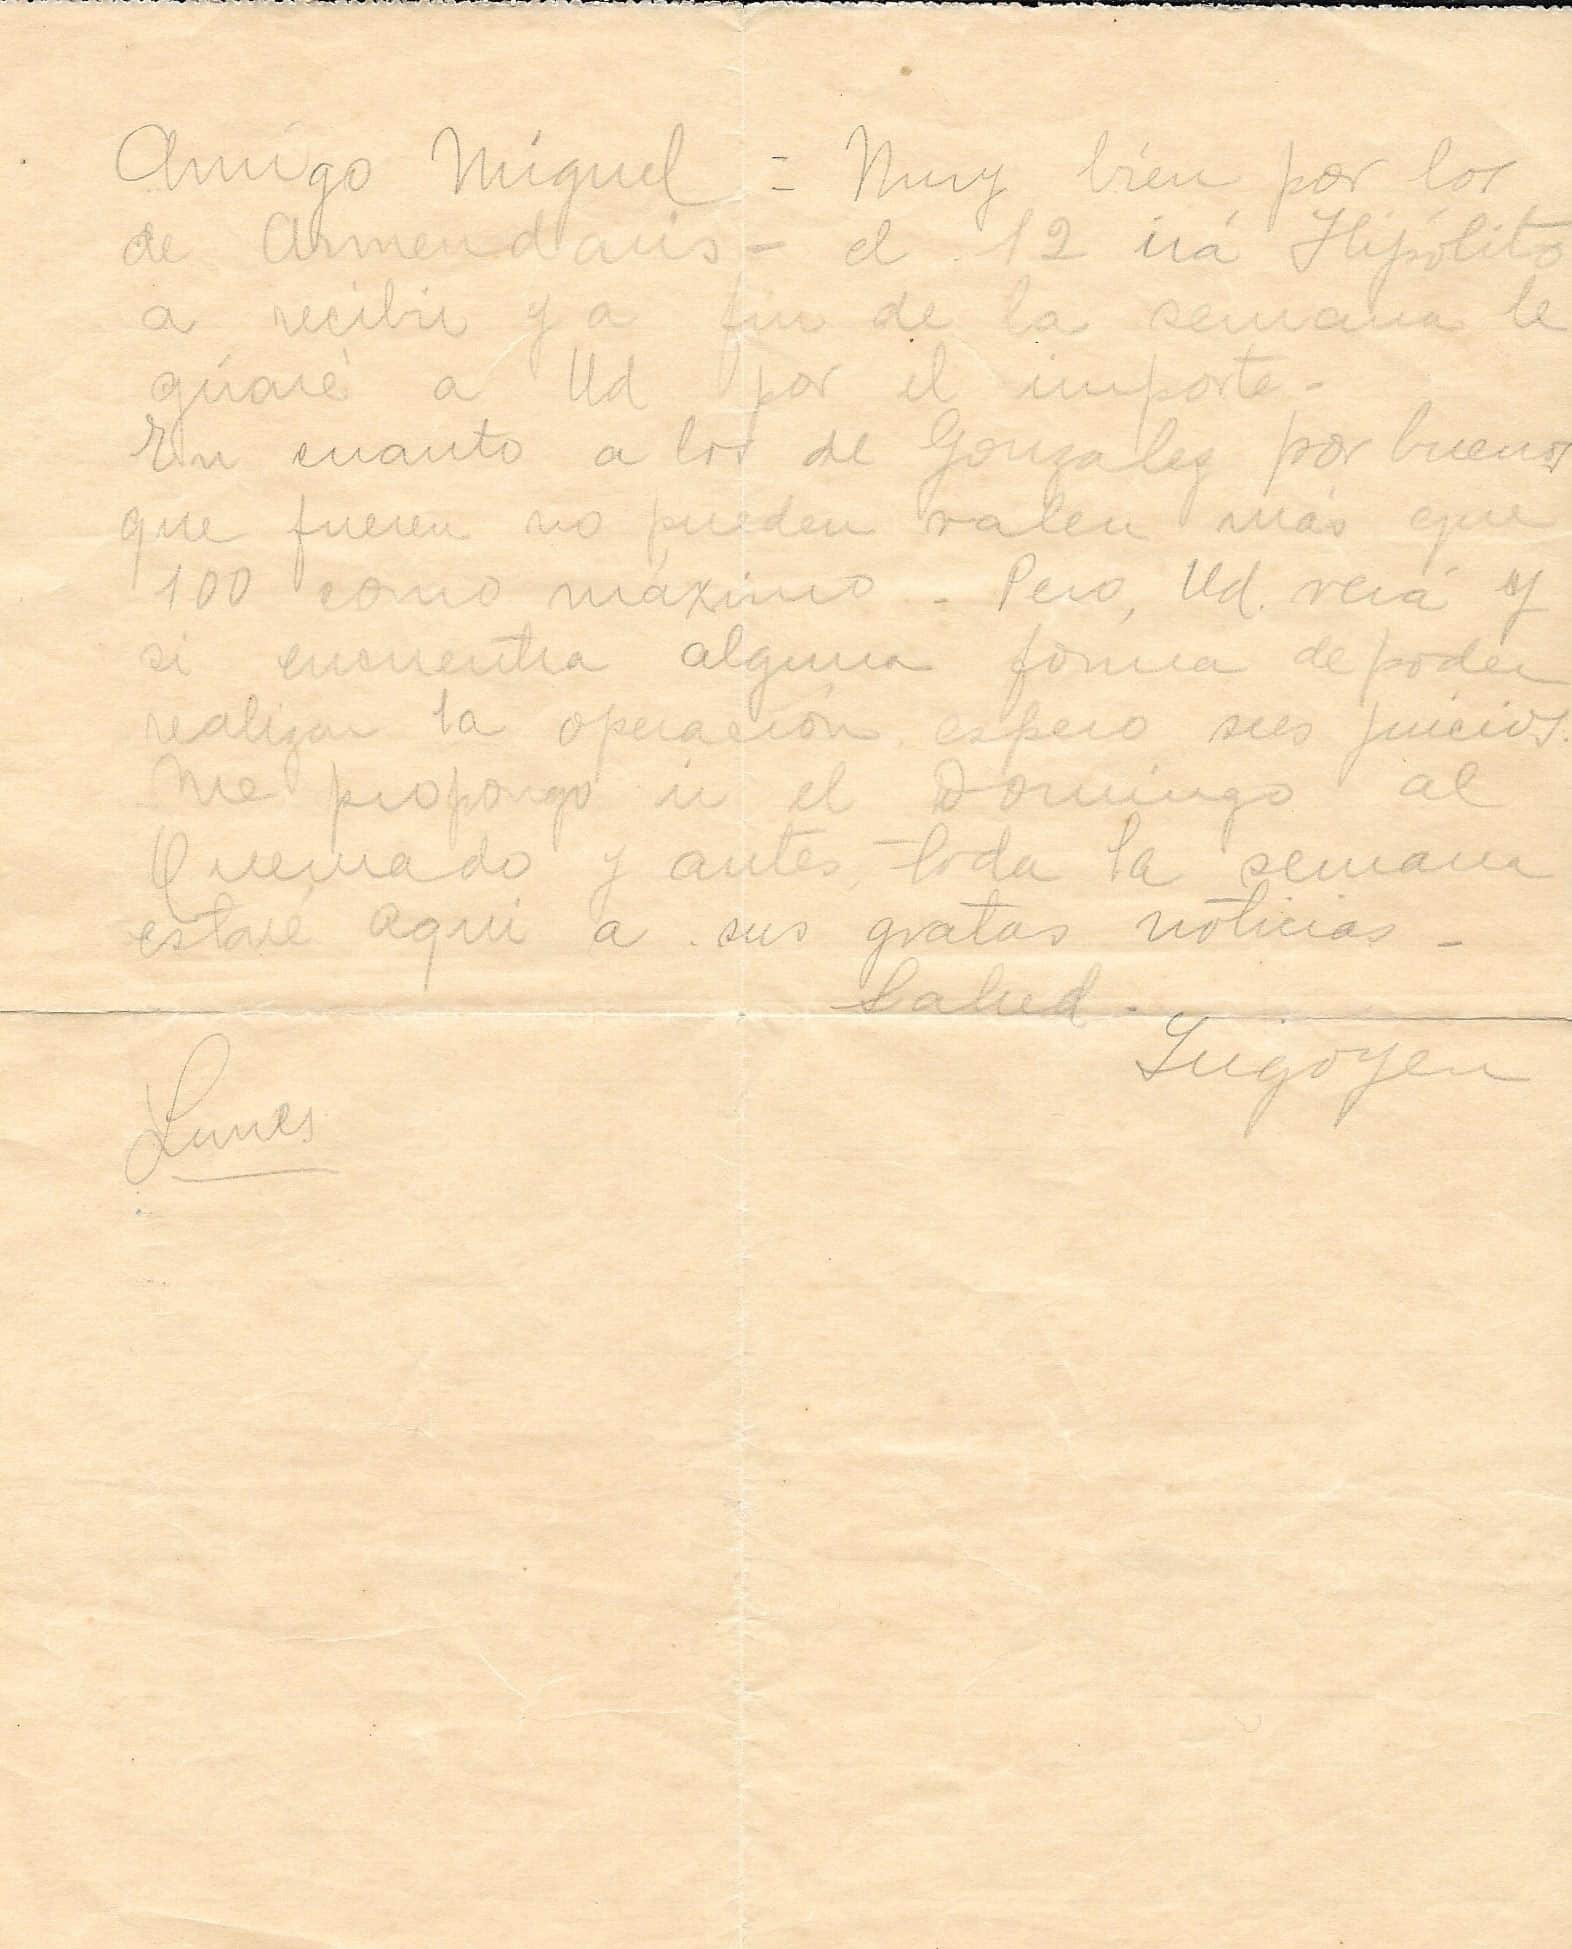 Amigo Miguel = Muy bien por los
de Armendaris - el 12 irá Hipólito
a recibir y a fin de la semana le
giraré a Ud por el importe -
En cuanto a los de Gonzalez por buenos
que fueren no pueden valer más que
100 como máximo - Pero, Ud. verá y
si encuentra alguna forma de poder
realizar la operación espero sus juicios.
Me propongo ir el Domingo al
Quemado y antes, toda la semana
estaré aquí a sus gratas noticias -
Salud -
Irigoyen
Lunes